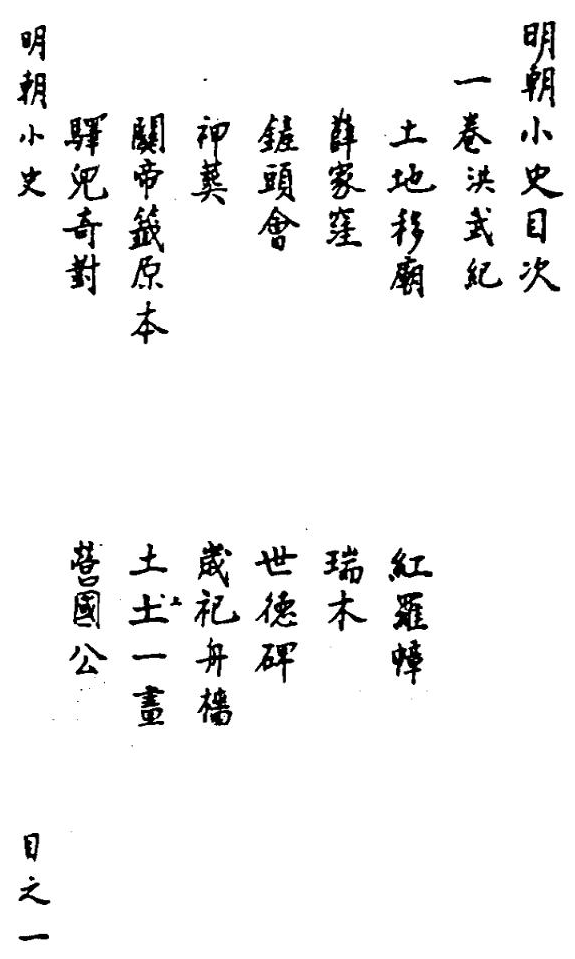 明朝小史目次
一卷洪武紀
土地移廟 紅羅幛
薛家窪 瑞木
頭會 世德碑
神葬 歲祀舟檣
關帝籤原本 土土上一畫
驛兒奇對 營國公
明朝小史 目之一